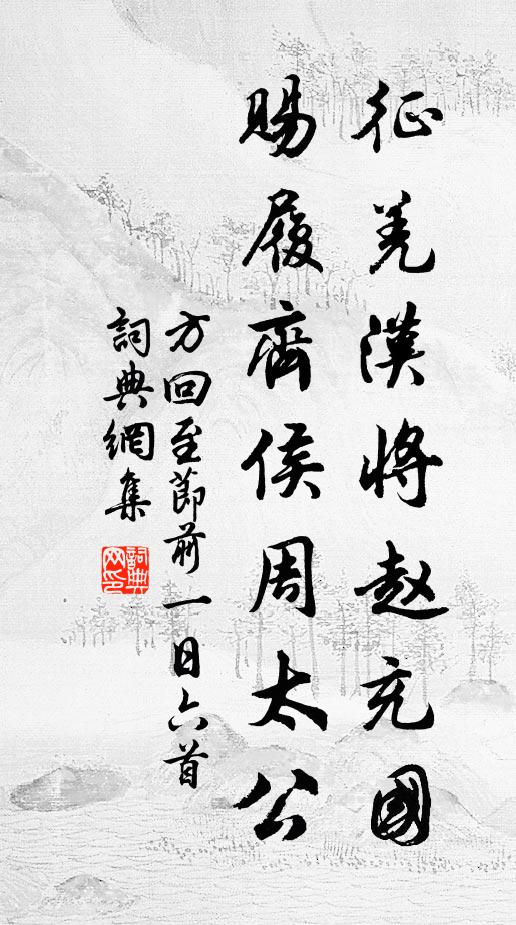 征羌漢將趙充國
賜履齊侯周太公
方回至節前一日六首
詞典網集
詞典
网印